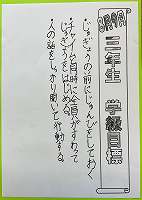 三年生 学級目標
・じゅぎょうの前にじゅんびをしておく
・チャイムと同時に全員がすわって
じゅぎょうをはじめる。
・人の話をしっかり聞いて行動する。